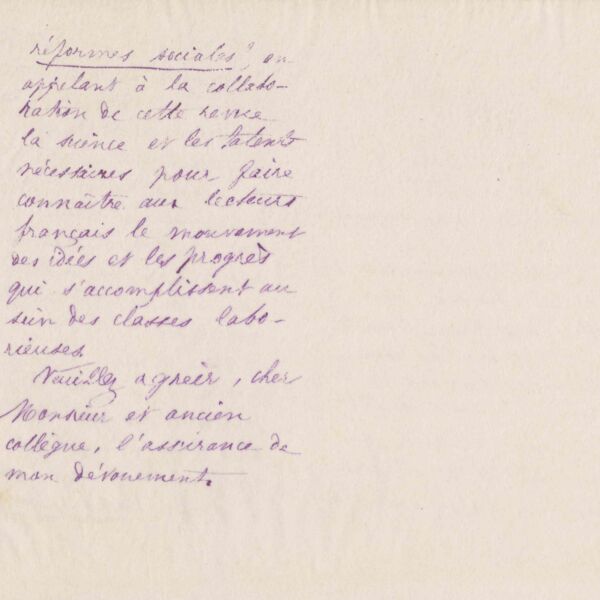 réformes sociales, en
appelant à la collabo-
ration de cette revue
la science et les talents
nécessaires pour faire
connaître aux lecteurs
français le mouvement
des idées et les progrès
qui s'accomplissent au
sein des classes labo-
rieuses.
Veuillez agréer, cher
Monsieur et ancien
collègue, l'assurance de
mon dévouement.